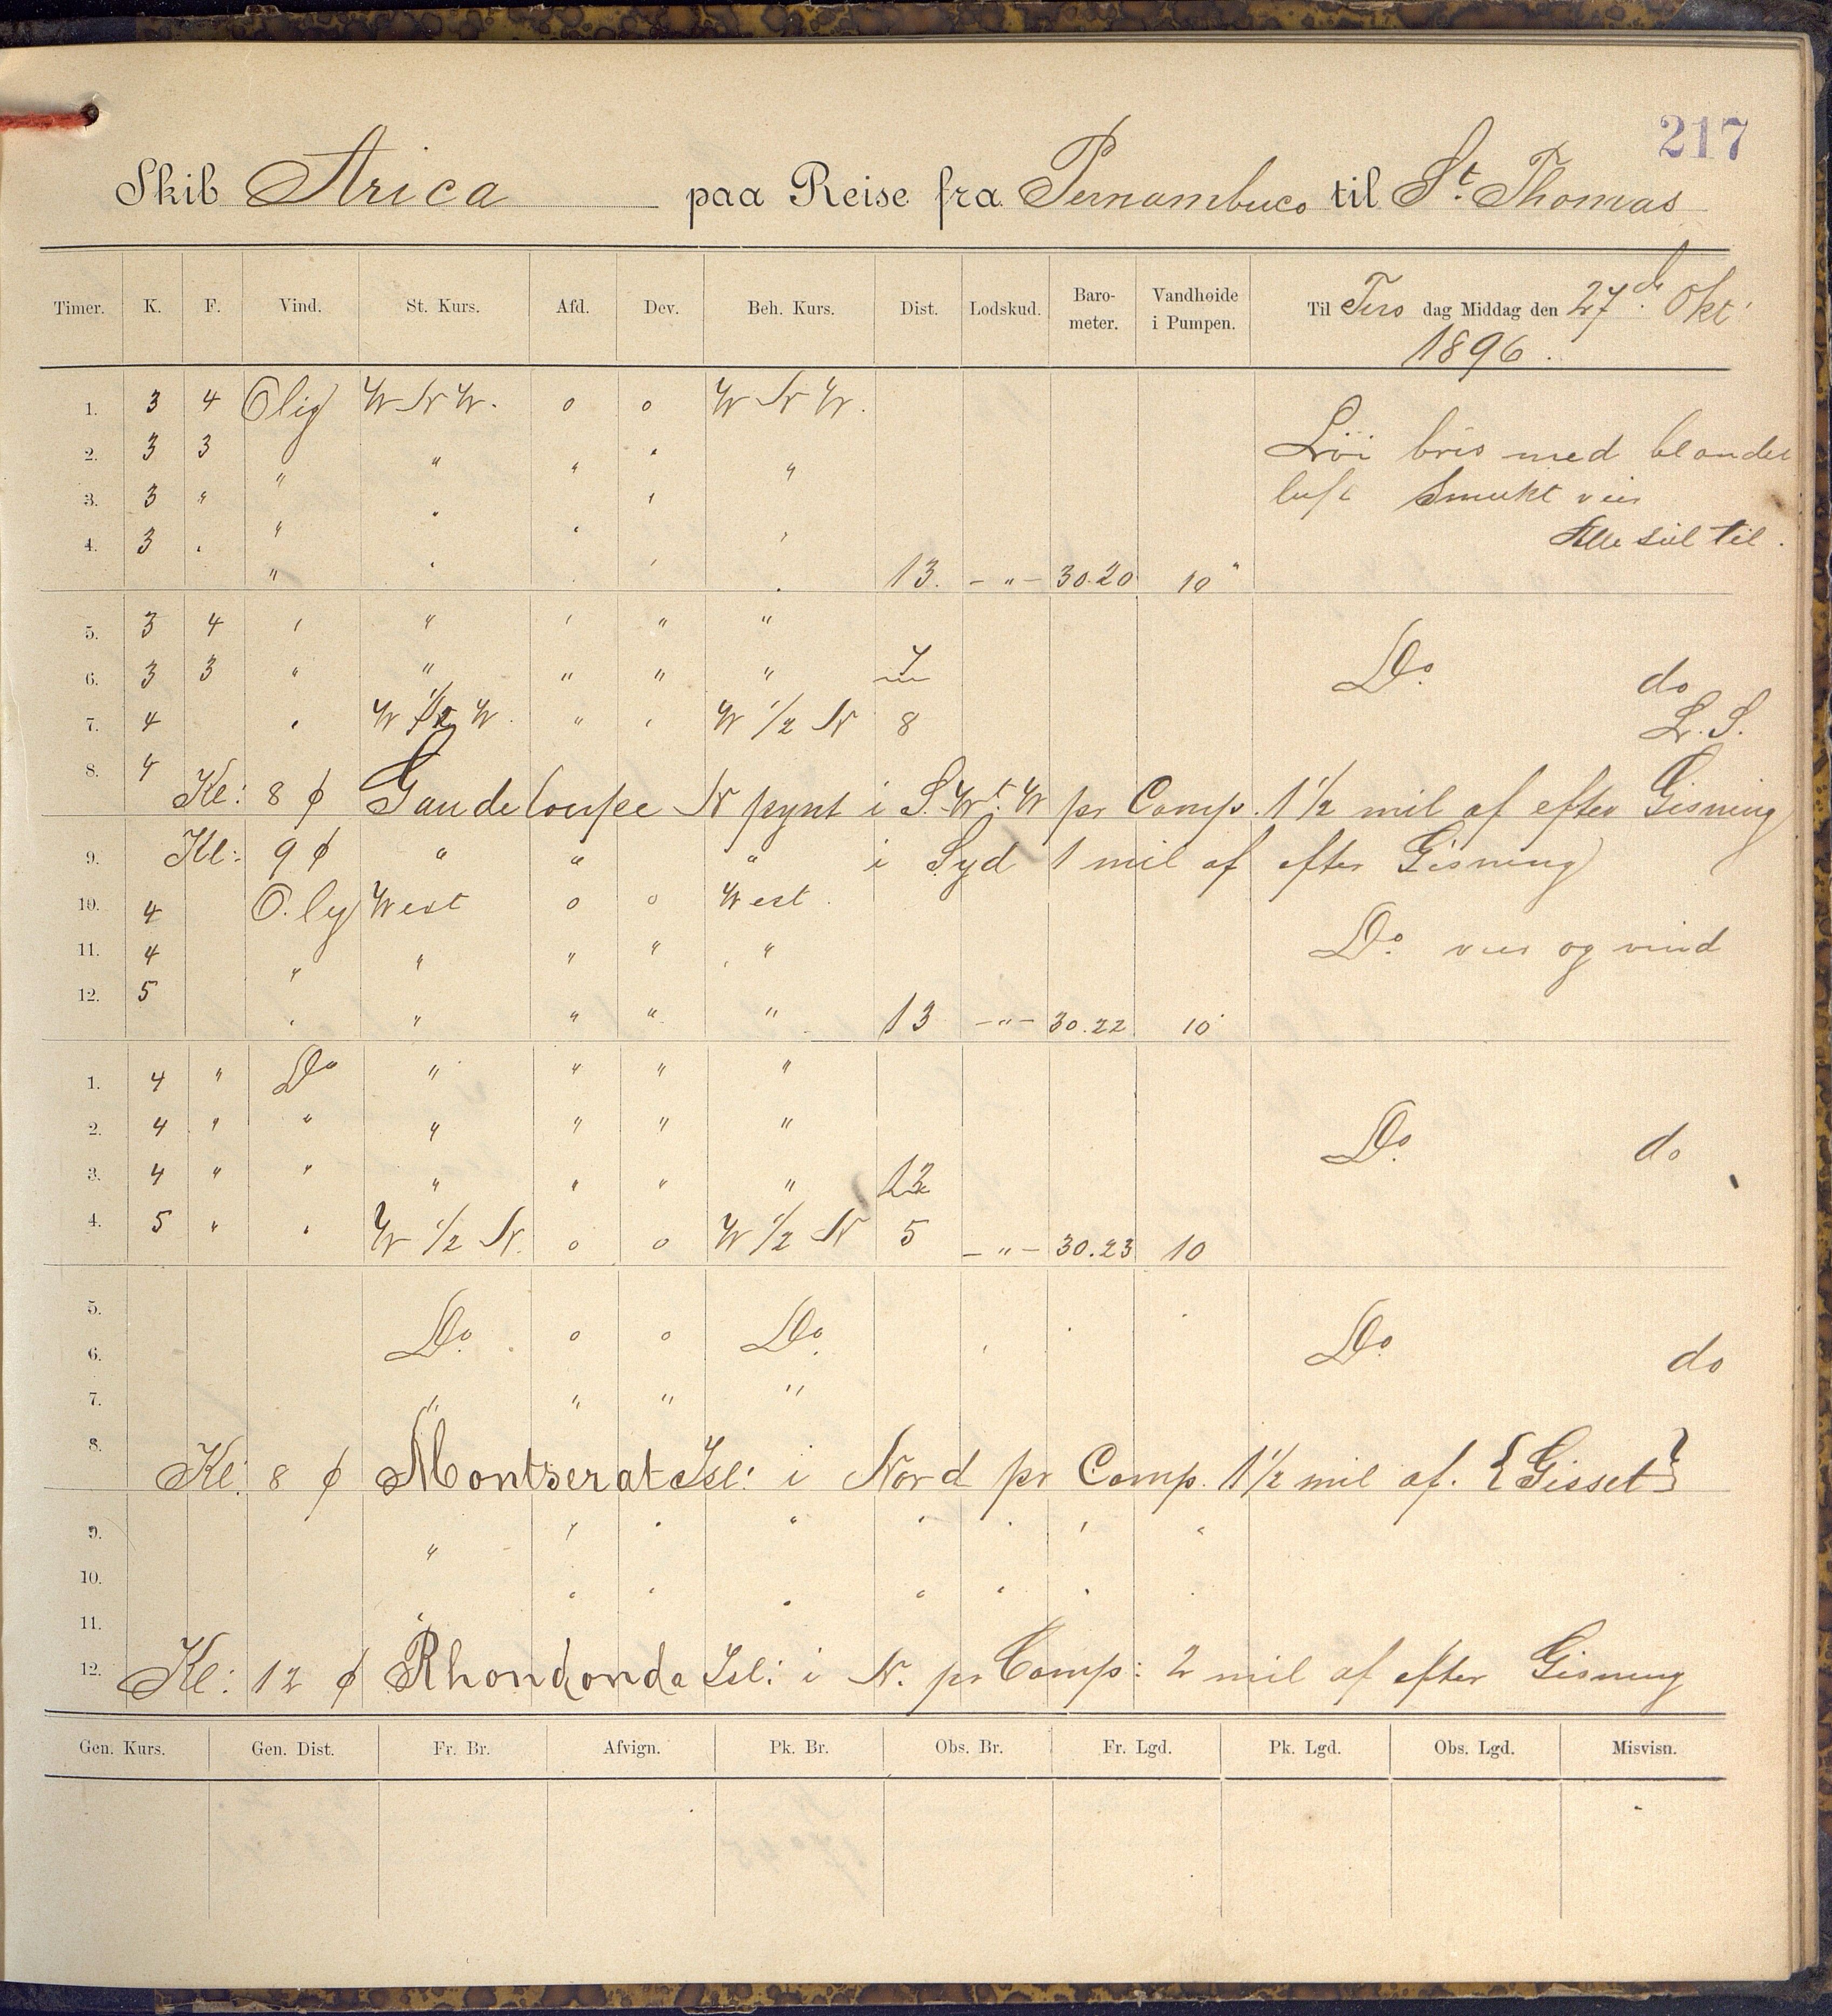 217
Skib Arica paa Reise fra Pernambuco til St. Thomas
Timer. K. F. Vind. St. Kurs. Afd. Dev. Beh. Kurs. Dist. Lodskud. Barometer. Vandhøide i Pumpen. Til Tirs dag Middag den 27de Okt 1896.
1. 3 4 Ølig W N W. 0 0 W N W.
2. 3 3 " " " " " Løi bris med blandet
3. 3 " " " " " " luft Smukt veir
4. 3 " " " " " " 13. - " - 30.20 10" Alle seil til.
5. 3 4 " " " " "
6. 3 3 " " " " " 7 Do. do
7. 4 " W 1/2 W. " " W 1/2 N 8 L. S.
8. 4
Kl: 8 φ Gaudeloupe N pynt i S. Wt. W pr Comp. 1 1/2 mil af efter Gisning
9. Kl: 9 φ " " " i Syd 1 mil af efter Gisning
10. 4 Ø.lig West 0 0 West.
11. 4 " " " " " Do. veir og vind
12. 5 " " " " " 13 - " - 30.22 10"
1. 4 " Do " " " "
2. 4 " " " " " " Do. do
3. 4 " " " " " "
4. 5 " " W 1/2 N. 0 0 W 1/2 N 5 - " - 30.23 10
5.
Do. 0 0 Do. Do. do
6.
7. " " " "
8.
Kl. 8 φ Montserat Isl: i Nord pr Comp. 1 1/2 mil af. {Gisset}
9. " " " " " " " "
10.
" " " " " " " "
11.
12. Kl: 12 φ Rhondonda Isl: i N. pr Comp: 2 mil af efter Gisning
Gen. Kurs. Gen. Dist. Fr. Br. Afvign. Pk. Br. Obs. Br. Fr. Lgd. Pk. Lgd. Obs. Lgd. Misvisn.